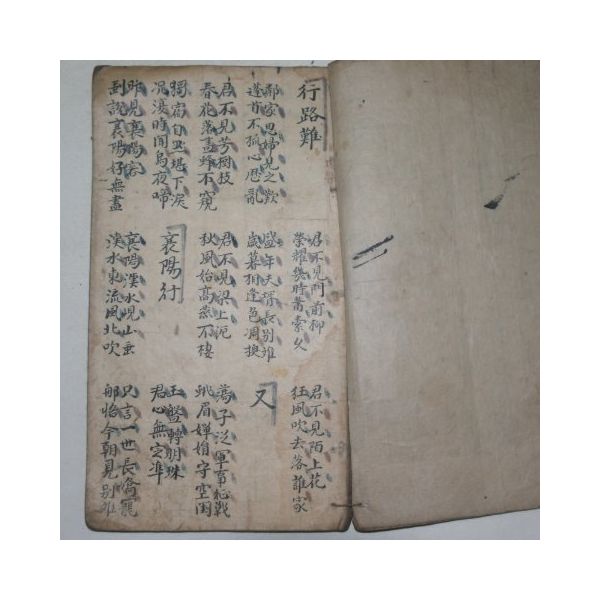 行路難
君不見門前柳
榮耀幾時蕭索久
君不見陌上花
狂風吹去落誰家
鄰家思婦見之歎
蓬首不梳心歷亂
盛年夫婿長別離
歲暮相逢色凋換
又
君不見芳樹枝
春花落盡蜂不窺
君不見梁上泥
秋風始高燕不棲
蕩子從軍事征戰
蛾眉嬋娟守空閨
獨宿自然堪下淚
況復時聞烏夜啼
襄陽行
玉盤轉明珠
君心無定準
昨見襄陽客
剩說襄陽好無盡
襄陽漢水峴山垂
漢水東流風北吹
只言一世長嬌寵
那悟今朝見別離